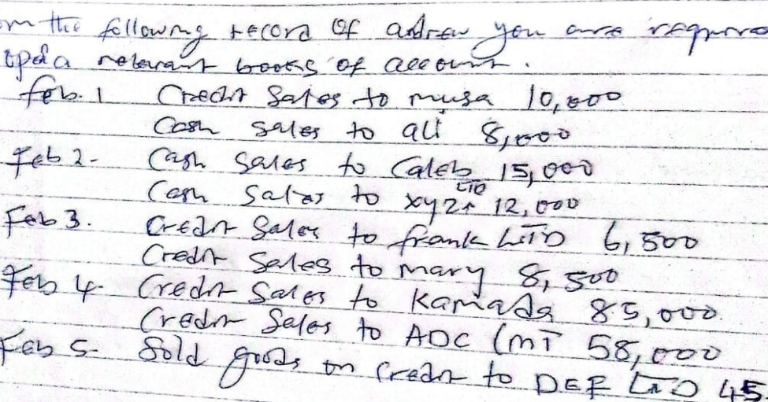 m the following record of andrew you are require
open a relevant books of account.
Feb. 1 Credit Sales to musa 10,000
Cash sales to ali 8,000
Feb 2. Cash Sales to Caleb 15,000
Cash Sales to xyz LTD 12,000
Feb 3. Credit Sales to frank LTD 6,500
Credit Sales to mary 8,500
Feb 4. Credit Sales to Kamada 85,000
Credit Sales to ADC LMT 58,000
Feb 5. Sold goods on credit to DEF LTD 45